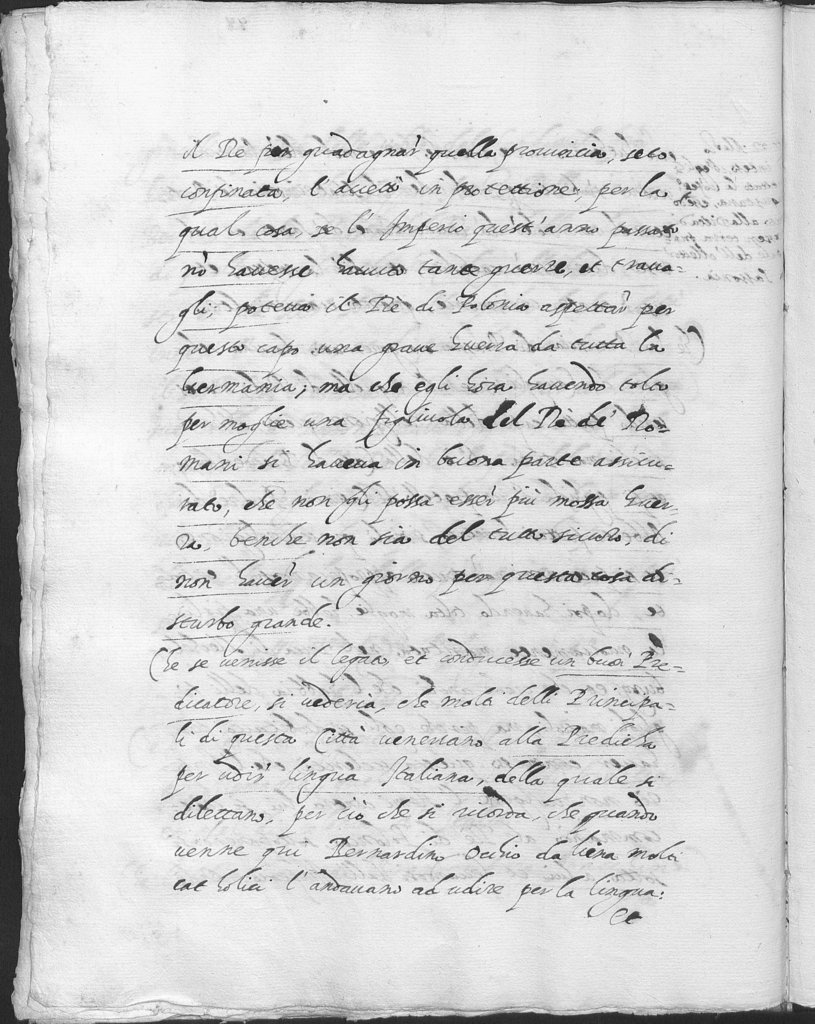 il Rè per guadagnar quella prouincia, seco
confinata, l'accettò in protettione, per la
qual cosa, se l'Imperio quest'anno passato
nõ hauesse hauuto tante guerre, et traua-
gli, poteua il Rè di Polonia aspettar per
questo capo una graue guerra da tutta la
Germania; ma che egli hora hauendo tolto
per moglie una figliuola del Rè de' Ro-
mani si haueua in buona parte assicu-
rato, che non gli possa esser più mossa guer-
ra, benche non sia del tutto sicuro, di
non hauer un giorno per questa cosa di-
sturbo grande.
Che se uenisse il legato et conducesse un buon Pre-
dicatore, si uederia, che molti delli Principa-
li di questa Città ueneriano alla Predicha
per udir lingua Italiana, della quale si
dilettano, per ciò che si ricorda, che quando
uenne qui Bernardino Ochio da Siena molti
catholici l'andauano ad udire per la lingua:
Et